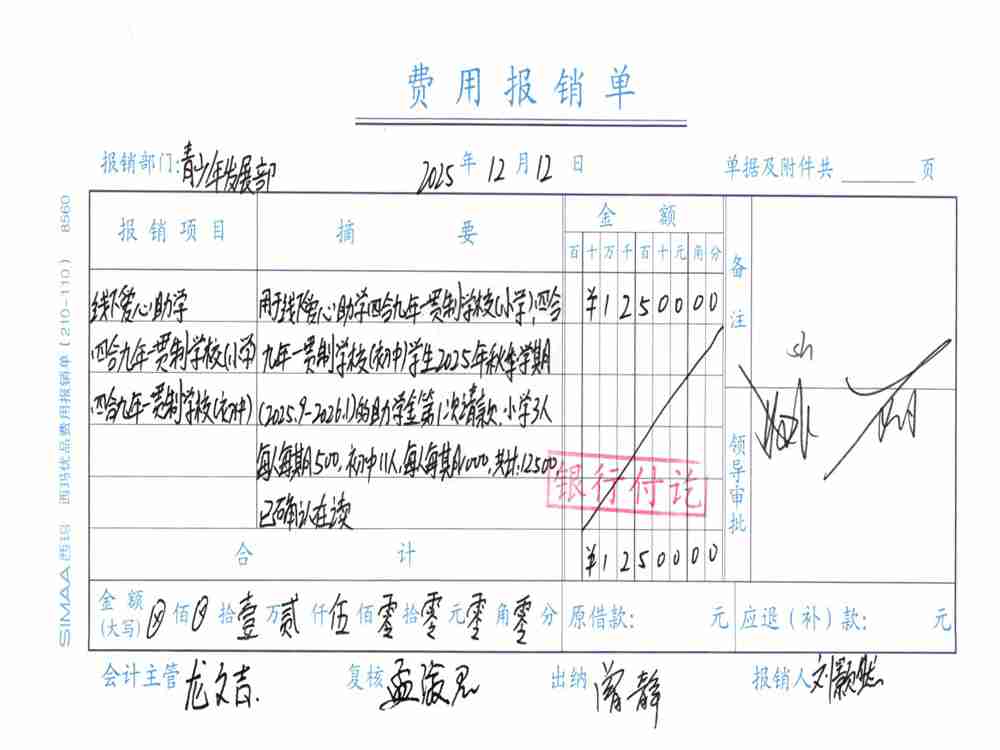 费用报销单
报销部门:青少年发展部 2025年12月12日 单据及附件共 页
报销项目 摘要 金额 备注
百十万千百十元角分
线下爱心助学 用于线下爱心助学四合九年一贯制学校(小学),四合 ¥1250000
四合九年一贯制学校(小学) 九年一贯制学校(初中)学生2025年秋季学期
四合九年一贯制学校(初中) (2025.9-2026.1)的助学金第1次请款.小学3人
每人每期500,初中11人,每人每期1000,共计:12500
银行付讫
已确认在读
领导审批
合计 ¥1250000
金额(大写) 佰 拾壹万贰仟伍佰零拾零元零角零分 原借款: 元 应退(补)款: 元
会计主管 龙文吉 复核 孟 出纳 曾静 报销人 刘颢然
SIMAA 西玛 西玛优品费用报销单(210-110) 8560